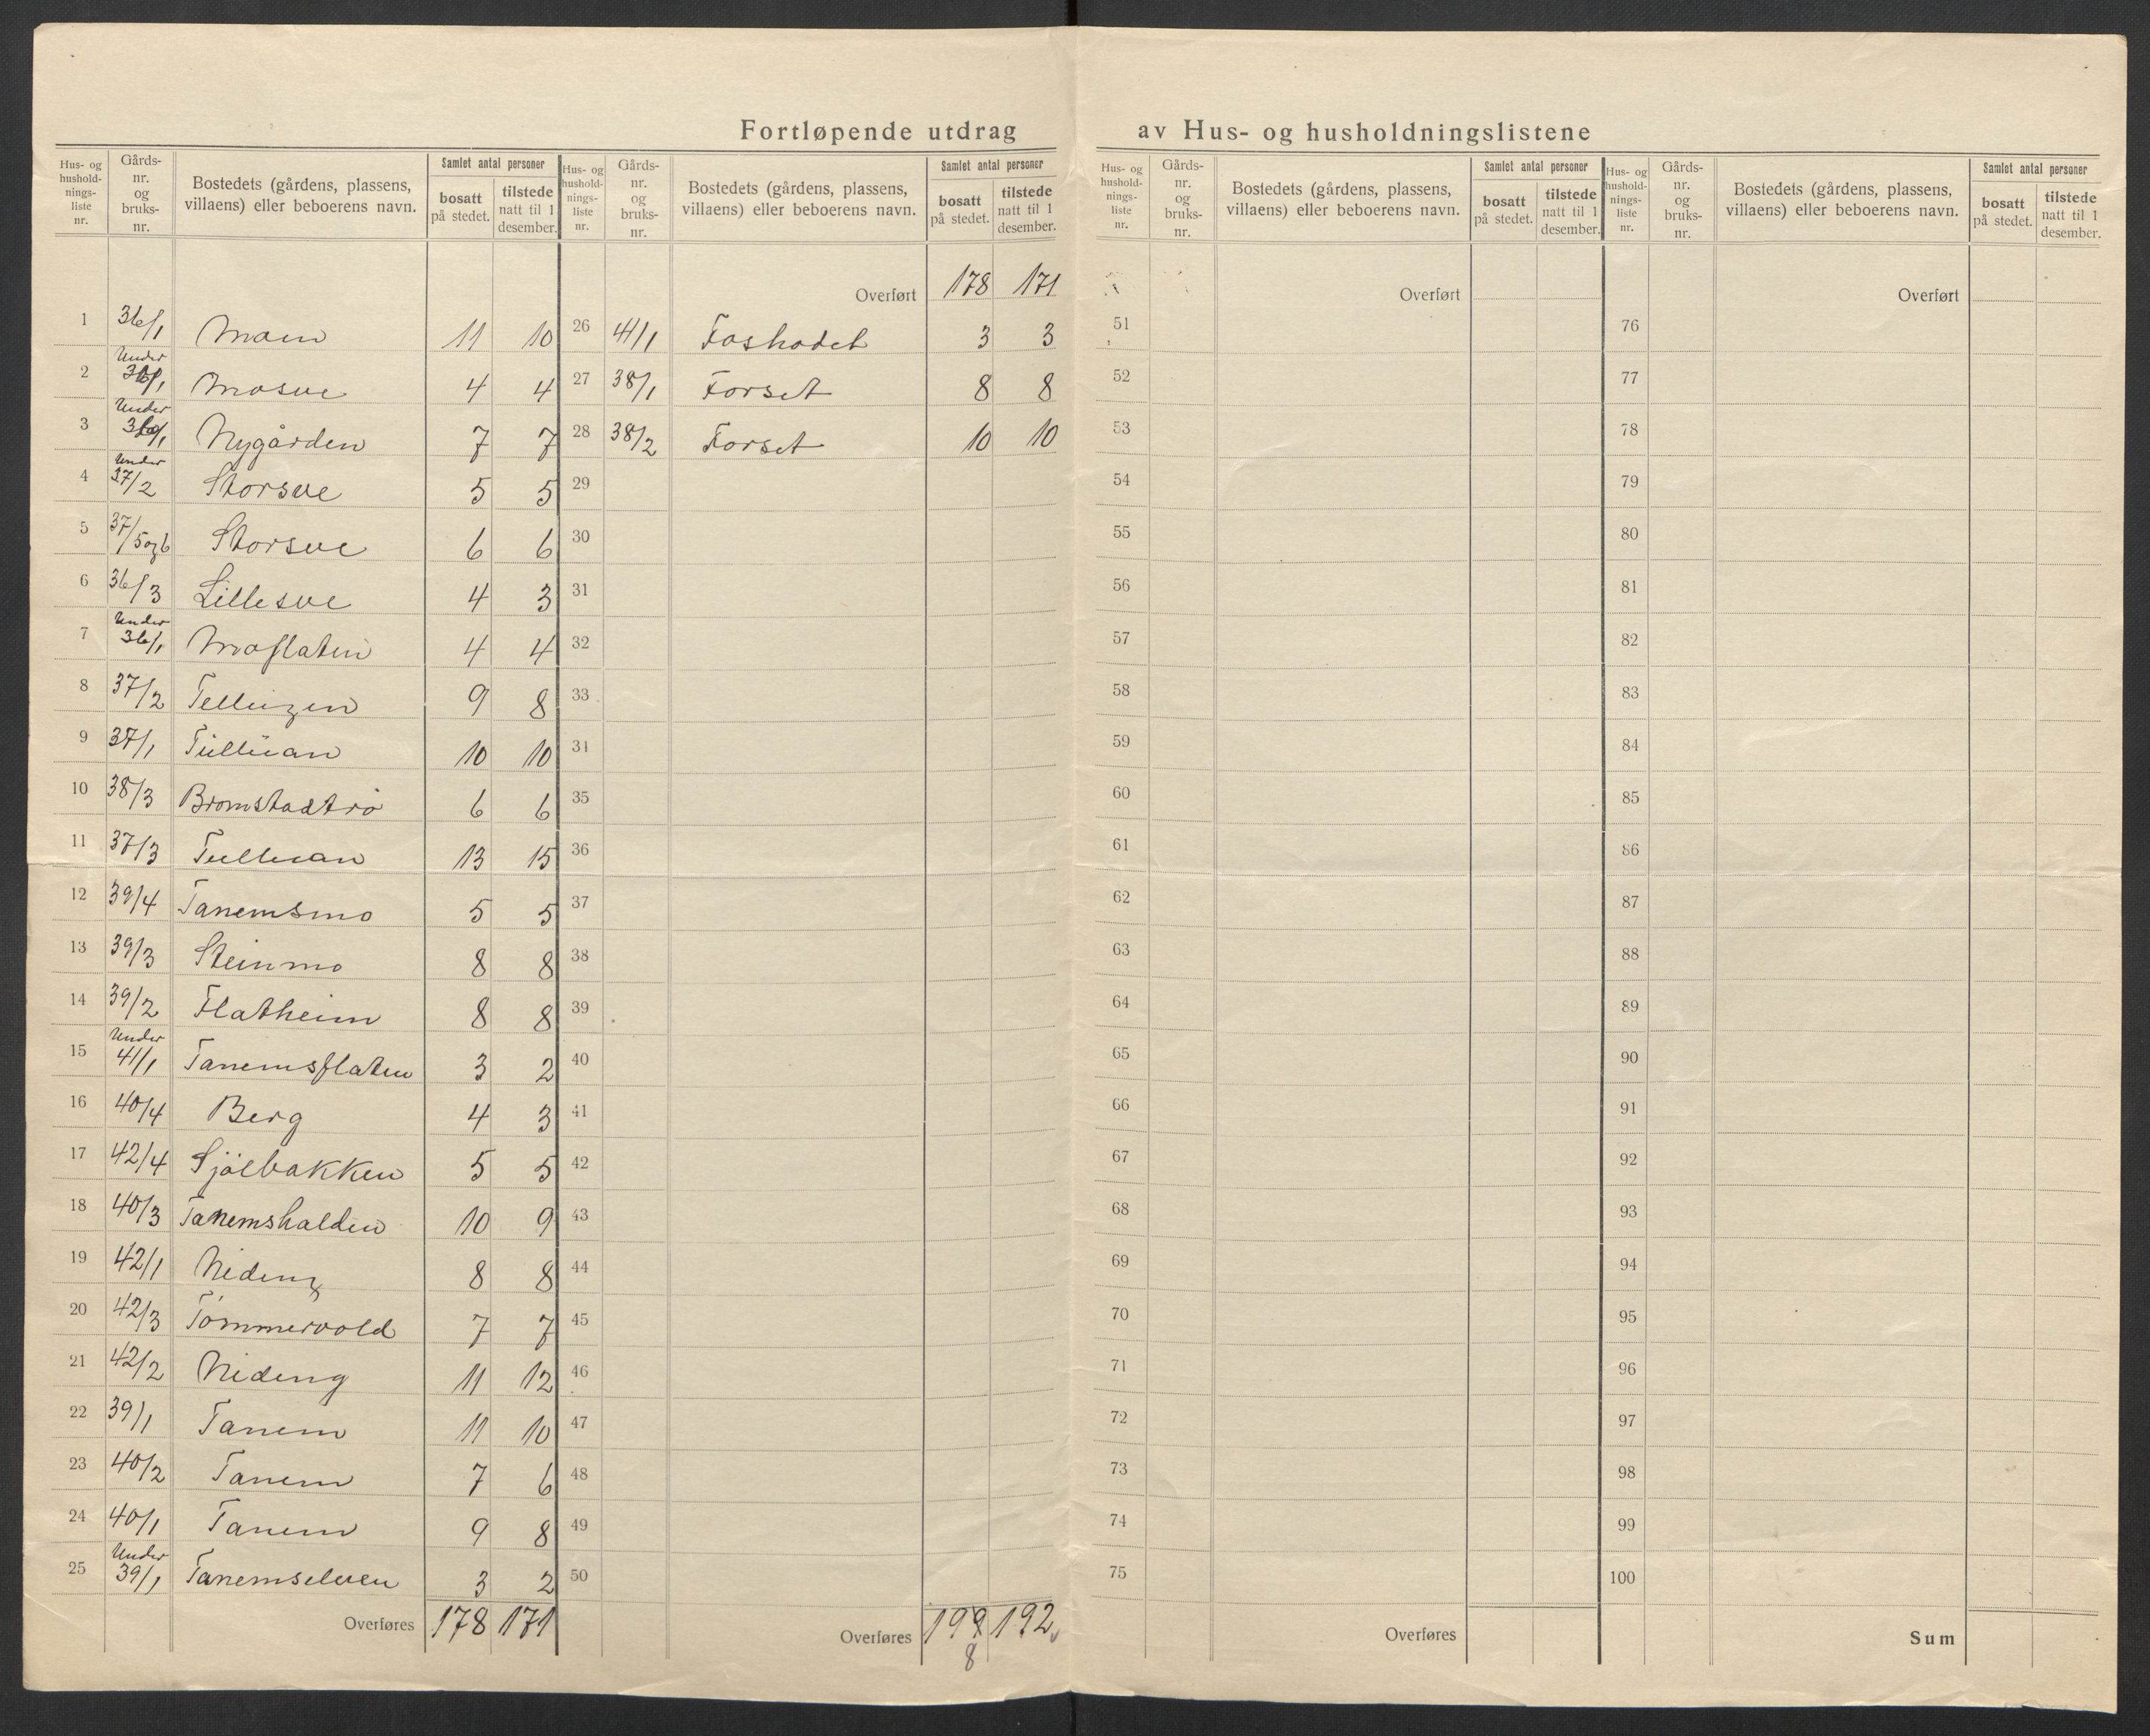 Fortløpende utdrag av Hus- og husholdningslistene
Hus- og husholdnings-liste nr. | Gårds-nr. og bruks-nr. | Bostedets (gårdens, plassens, villaens) eller beboerens navn. | Samlet antal personer | bosatt på stedet. | tilstede natt til 1 desember.
1 36/1 Moen 11 10
2 Under 36/1 Mosve 4 4
3 Under 36/1 Nygården 7 7
4 Under 37/2 Storsve 5 5
5 37/5 og 6 Storsve 6 6
6 36/3 Lillesve 4 3
7 Under 36/1 Moflaten 4 4
8 37/2 9 8
9 37/1 10 10
10 38/3 Bromstadtrø 6 6
11 37/3 13 15
12 39/4 Tanemsmo 5 5
13 39/3 Steinmo 8 8
14 39/2 Flatheim 8 8
15 Under 41/1 Tanemsflaten 3 2
16 40/4 Berg 4 3
17 42/4 Sjølbakken 5 5
18 40/3 Tanemshalden 10 9
19 42/1 Nideng 8 8
20 42/3 Tømmervold 7 7
21 42/2 Nideng 11 12
22 39/1 Tanem 11 10
23 40/2 Tanem 7 6
24 40/1 Tanem 9 8
25 Under 39/1 Tanemselven 3 2
Overføres 178 171
Hus- og husholdnings-liste nr. | Gårds-nr. og bruks-nr. | Bostedets (gårdens, plassens, villaens) eller beboerens navn. | Samlet antal personer | bosatt på stedet. | tilstede natt til 1 desember.
Overført 178 171
26 41/1 3 3
27 38/1 Forset 8 8
28 38/2 Forset 10 10
29
30
31
32
33
34
35
36
37
38
39
40
41
42
43
44
45
46
47
48
49
50
Overføres 199 192
8
Hus- og husholdnings-liste nr. | Gårds-nr. og bruks-nr. | Bostedets (gårdens, plassens, villaens) eller beboerens navn. | Samlet antal personer | bosatt på stedet. | tilstede natt til 1 desember.
Overført
51
52
53
54
55
56
57
58
59
60
61
62
63
64
65
66
67
68
69
70
71
72
73
74
75
Overføres
Hus- og husholdnings-liste nr. | Gårds-nr. og bruks-nr. | Bostedets (gårdens, plassens, villaens) eller beboerens navn. | Samlet antal personer | bosatt på stedet. | tilstede natt til 1 desember.
Overført
76
77
78
79
80
81
82
83
84
85
86
87
88
89
90
91
92
93
94
95
96
97
98
99
100
Sum